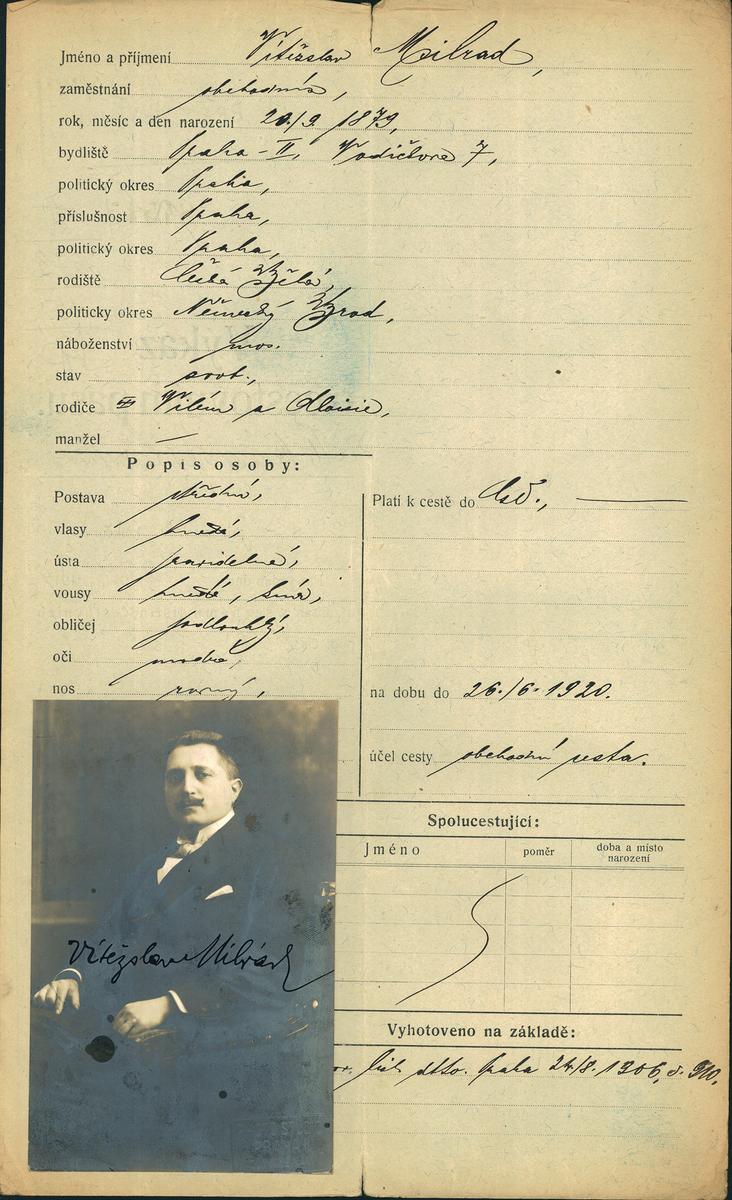 Jméno a příjmení Vítězslav Milrad,
zaměstnání obchodník,
rok, měsíc a den narození 20./9. 1879,
bydliště Praha – II, Vodičkova 7,
politický okres Praha,
příslušnost Praha,
politický okres Praha,
rodiště Česká Bělá,
politicky okres Německý Brod,
náboženství
stav svob.,
rodiče Vilém a Aloisie,
manžel —
Popis osoby:
Postava střední,
vlasy hnědé,
ústa pravidelné,
vousy hnědé, knír,
obličej podlouhlý,
oči modré,
nos rovný,
Platí k cestě do
na dobu do 26./6. 1920.
účel cesty obchodní cesta.
Spolucestující:
Jméno poměr doba a místo
narození
Vítězslav Milrad
Vyhotoveno na základě:
list dtto. Praha 24./8. 1906, č. 910.